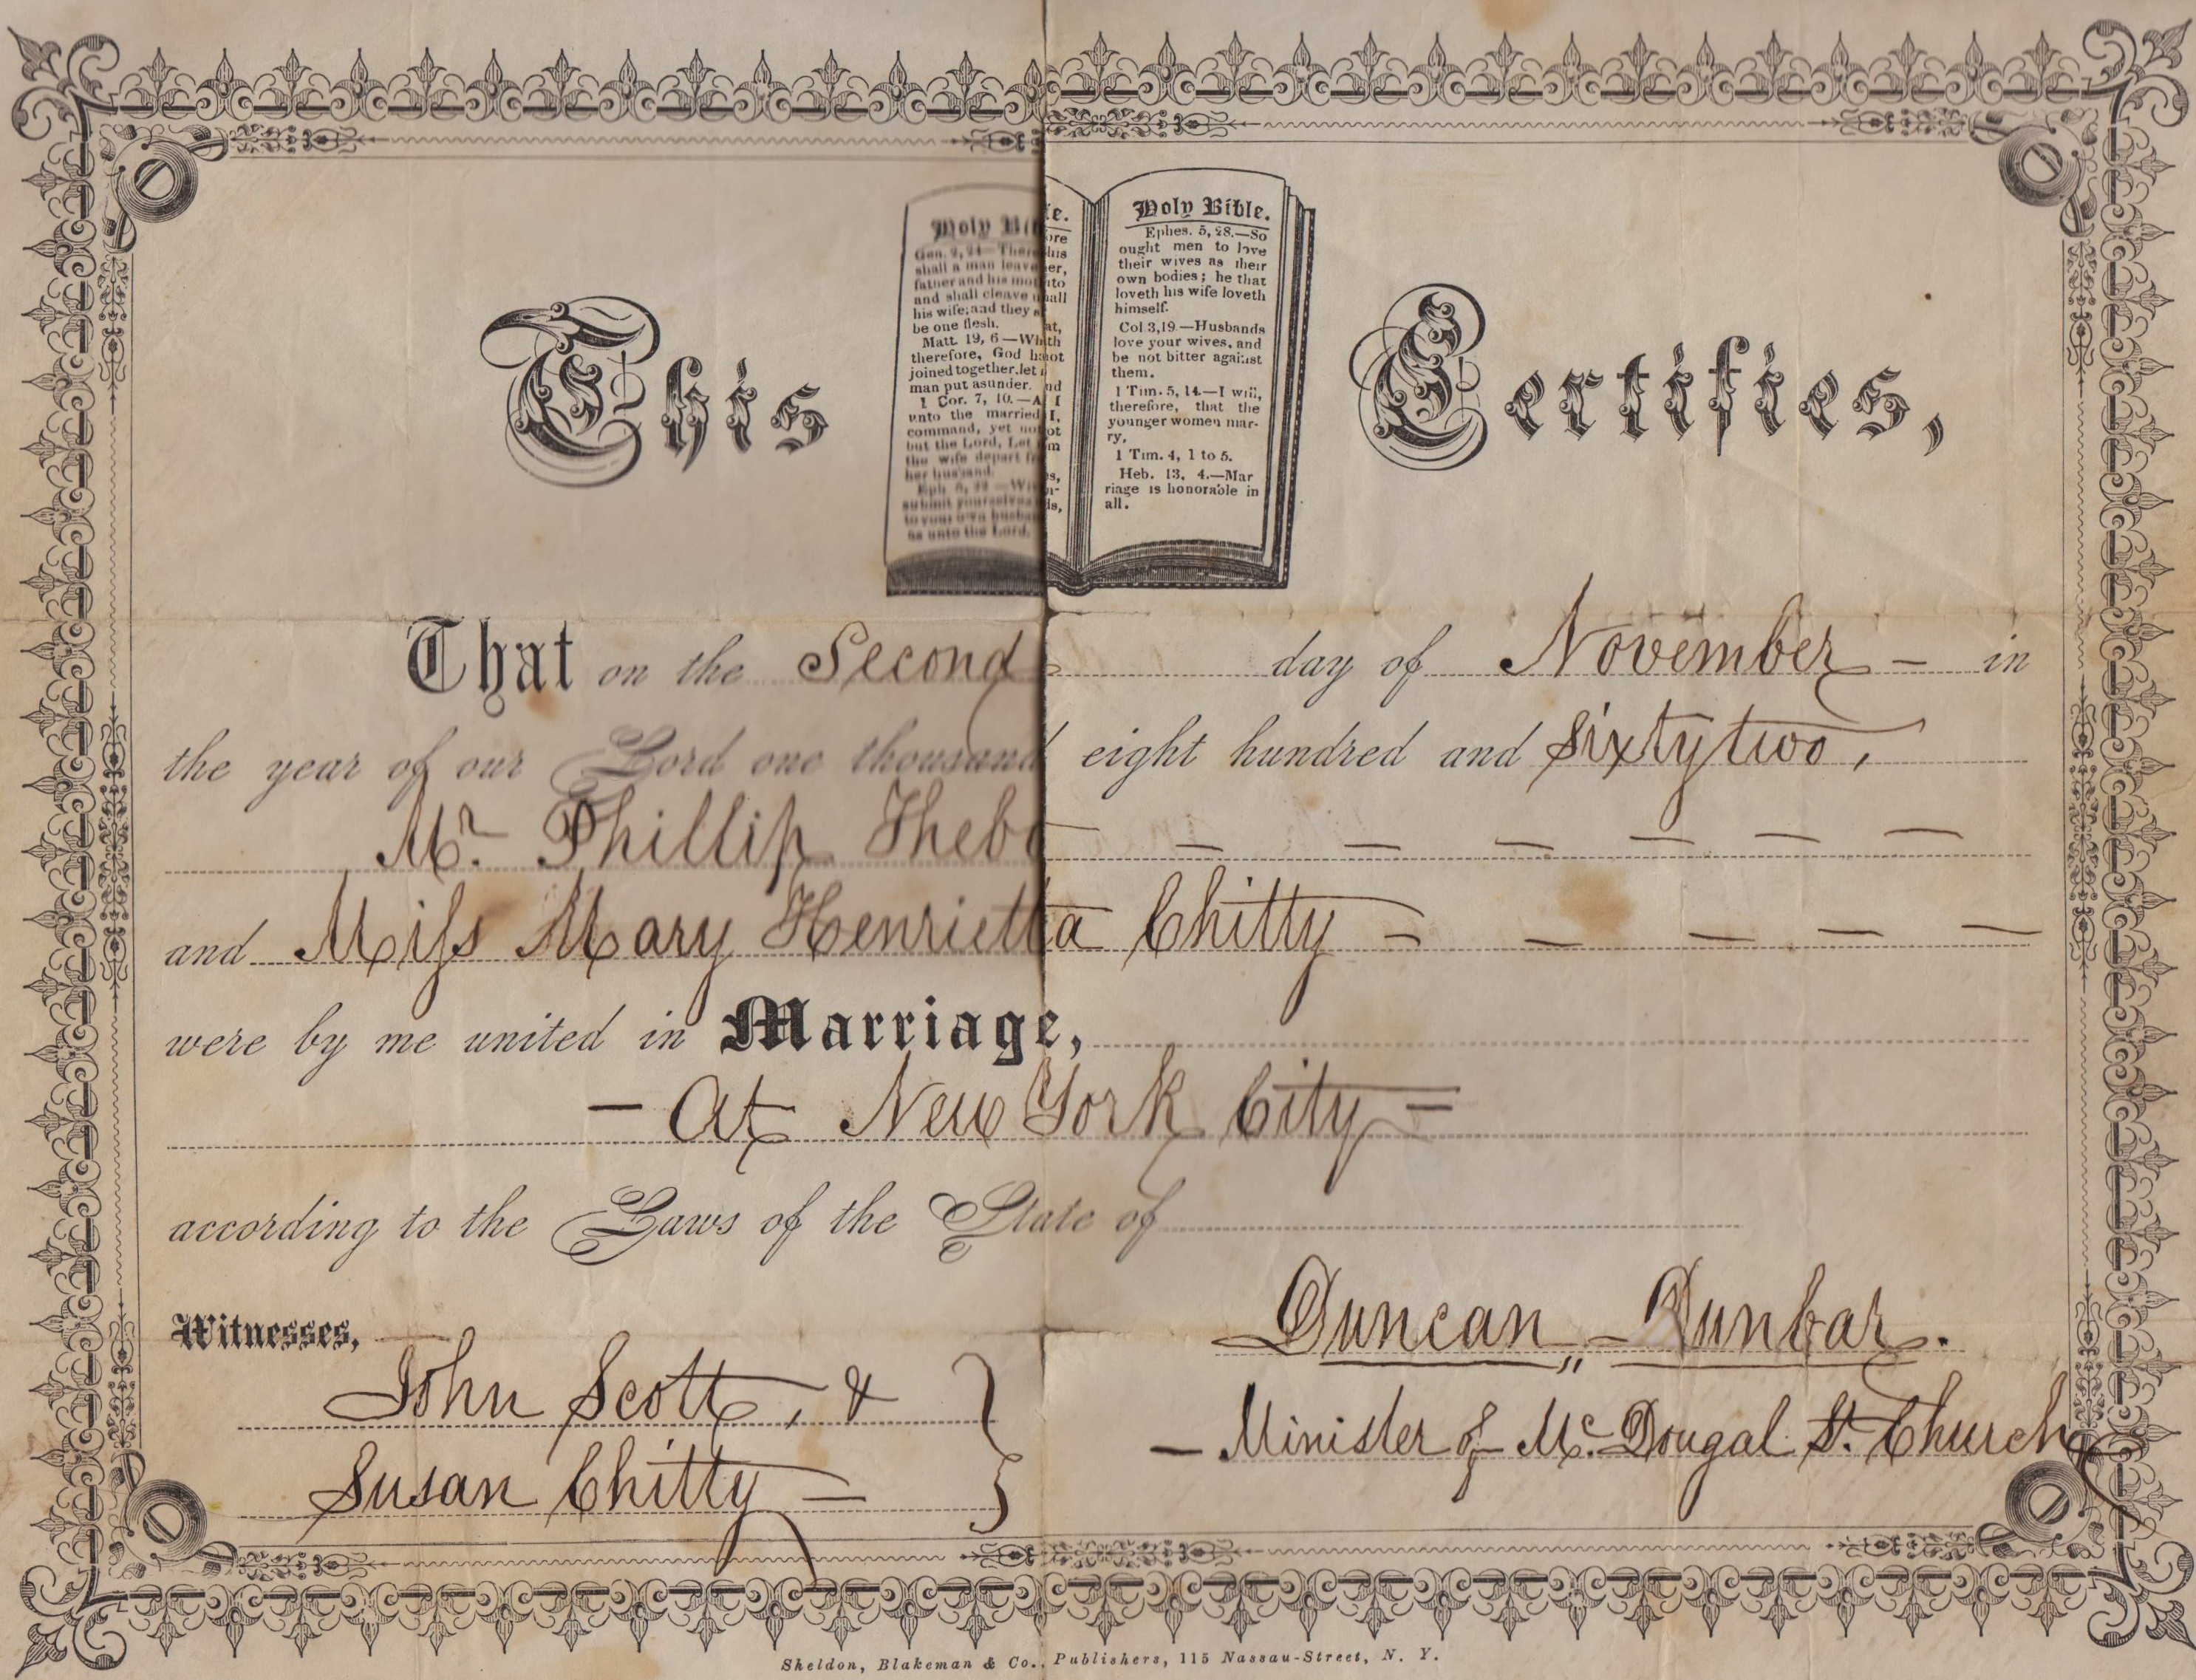 This Certifies,
Holy Bi
Gen. 2, 24—There
shall a man leave
father and his mot
and shall cleave u
his wife; and they s
be one flesh.
Matt. 19, 6—Wh
therefore, God h
joined together, let
man put asunder.
1 Cor. 7, 10.—A
unto the married I
command, yet not
but the Lord, Let
the wife depart f
her husband.
Eph 5, 22—Wi
submit yourselves
to your own husba
as unto the Lord.
Holy Bible.
Ephes. 5, 28.—So
ought men to love
their wives as their
own bodies; he that
loveth his wife loveth
himself.
Col 3,19.—Husbands
love your wives, and
be not bitter against
them.
1 Tim. 5, 14.—I will,
therefore, that the
younger women mar-
ry.
1 Tim. 4, 1 to 5.
Heb. 13, 4.—Mar
riage is honorable in
all.
That on the Second day of November – in
the year of our Lord one thousand eight hundred and Sixty two,
Mr. Phillip
and Miss Mary Henrietta Chitty
were by me united in Marriage,
– At New York City –
according to the Laws of the State of
Duncan Dunbar.
Witnesses,
John Scott, &
– Minister of Mc.Dougal St. Church
Susan Chitty –
Sheldon, Blakeman & Co., Publishers, 115 Nassau-Street, N. Y.